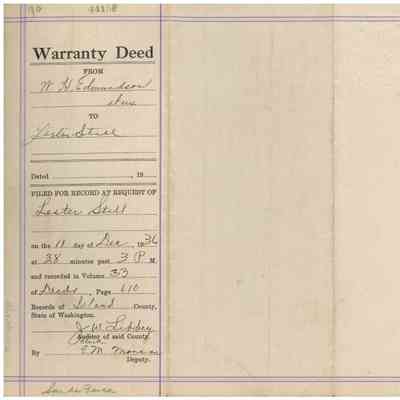 Warranty Deed
FROM
W. H. Edmundson
TO
Lester Still
Dated , 19
FILED FOR RECORD AT REQUEST OF
Lester Still
on the 11 day of Dec , 1936
at 28 minutes past 3 P M
and recorded in Volume 53
of Deeds , Page 610
Records of Island County,
State of Washington.
J. W. Libbey
Auditor of said County.
By E. M.
Deputy.